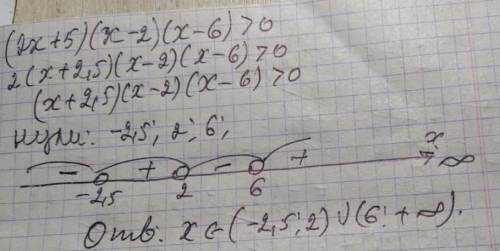 (2x+5)(x-2)(x-6)>0
2(x+2,5)(x-2)(x-6)>0
(x+2,5)(x-2)(x-6)>0
нули: -2,5; 2; 6;
x
- + - + ∞
-2,5 2 6
Отв: x∈(-2,5; 2)∪(6; +∞).